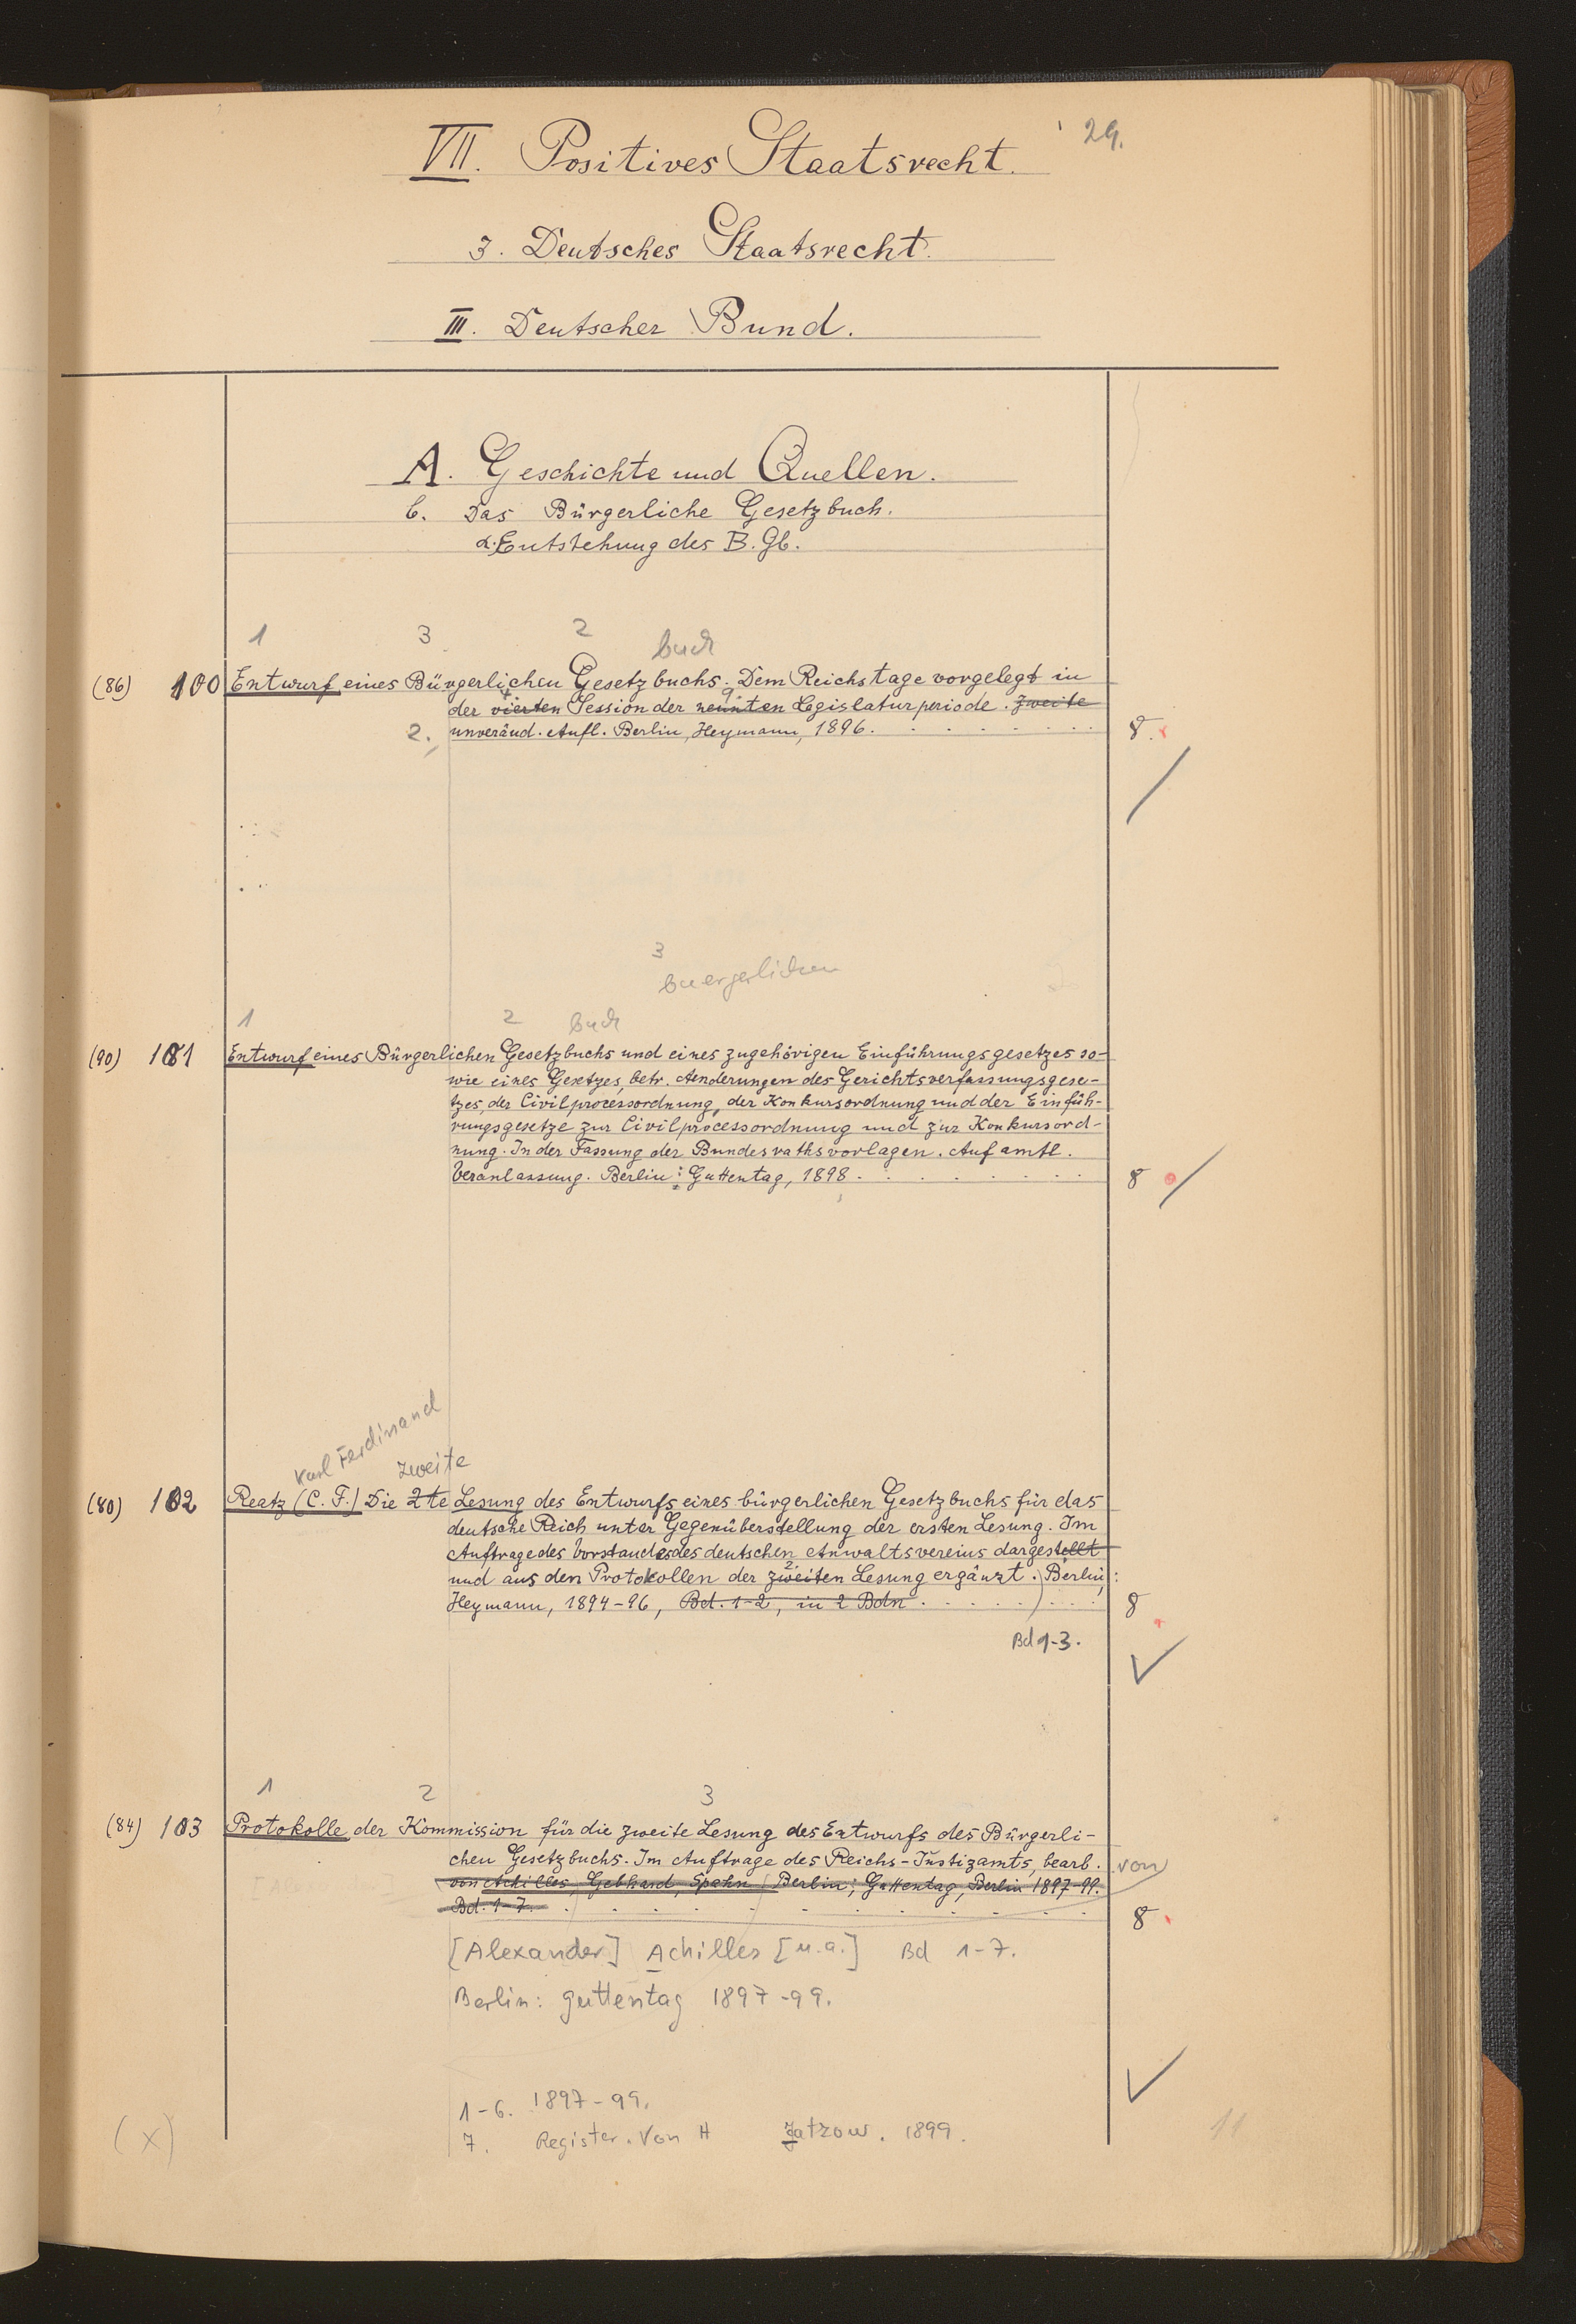 29.
VII. Positives Staatsrecht.
3. Deutsches Staatsrecht.
III. Deutscher Bund.
A. Geschichte und Quellen.
b. Das Bürgerliche Gesetzbuch.
α. Entstehung des B. Gb.
1 3 2 buch
(86) 100 Entwurf eines Bürgerlichen Gesetzbuchs. Dem Reichstage vorgelegt in
der vierten Session der neunten Legislaturperiode. Zweite
2. unveränd. Aufl. Berlin, Heymann, 1896. 8.
3
buergerlichen
1 2 Buch
(90) 101 Entwurf eines Bürgerlichen Gesetzbuchs und eines zugehörigen Einführungsgesetzes so-
wie eines Gesetzes, betr. Aenderungen des Gerichtsverfassungsgese-
tzes, der Civilprocessordnung, der Konkursordnung und der Einfüh-
rungsgesetze zur Civilprocessordnung und zur Konkursord-
nung. In der Fassung der Bundesrathsvorlagen. Auf amtl.
Veranlassung. Berlin: Guttentag, 1898. 8
Karl Ferdinand
zweite
(80) 102 Reatz (C. F.) Die 2te Lesung des Entwurfs eines bürgerlichen Gesetzbuchs für das
deutsche Reich unter Gegenüberstellung der ersten Lesung. Im
Auftrage des Vorstandes des deutschen Anwaltsvereins dargestellt
2.
und aus den Protokollen der zweiten Lesung ergänzt. Berlin:
Heymann, 1894-96, Bd. 1-2, in 2 Bdn. 8
Bd 1-3.
1 2 3
(84) 103 Protokolle der Kommission für die zweite Lesung des Entwurfs des Bürgerli-
chen Gesetzbuchs. Im Auftrage des Reichs-Justizamts, bearb. von
von Achilles, Gebhard, Spahn Berlin; Guttentag, Berlin 1897-99.
Bd. 1-7. 8
[Alexander] Achilles [u.a.] Bd 1-7.
Berlin: Guttentag 1897-99.
1-6. 1897-99.
7. Register. Von H Jatzow. 1899.
(x) 11